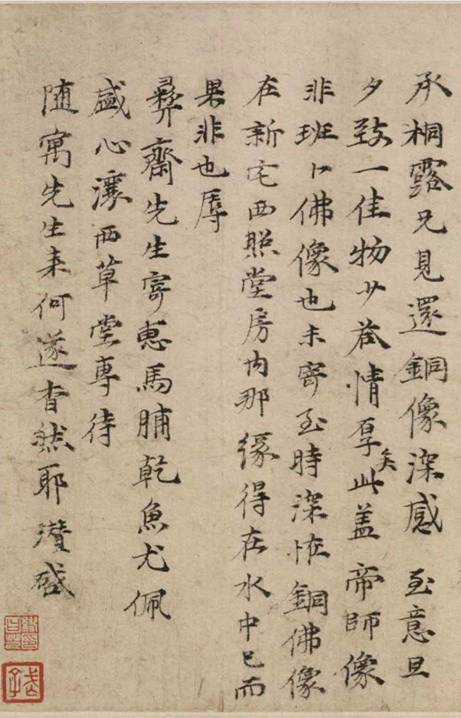 承桐露兄見還銅像深感 至意旦
夕致一佳物少荅情厚矣此盖帝師像
非班卜佛像也未寄至時深恠銅佛像
在新宅西照堂房内那緣得在水中已而
果非也辱
彝齋先生寄惠馬脯乾魚尤佩
盛心瀼西草堂專待
随寓先生来何遂杳然耶瓚啓